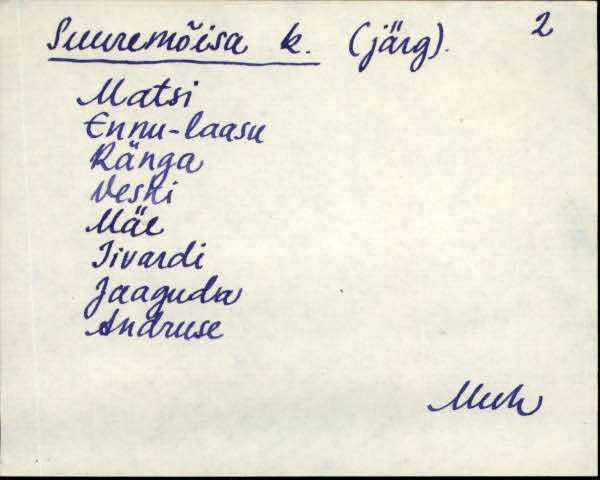 Suuremõisa k. (järg). 2
Matsi
Ennu-laasu
Ränga
Veski
Mäe
Iivardi
Jaaguda
Andruse
Muh